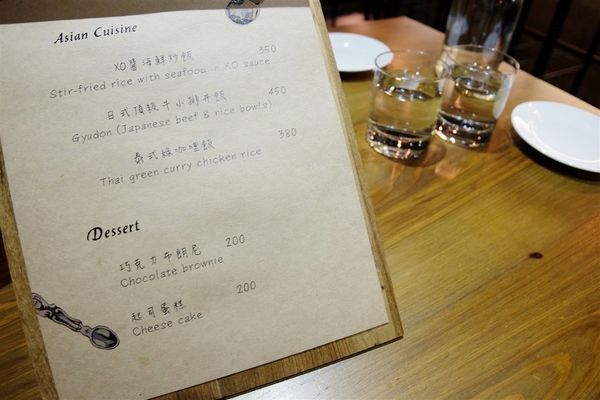 Asian Cuisine
XO醬海鮮炒飯 350
Stir-fried rice with seafood in XO sauce
日式頂級牛小排丼飯 450
Gyudon (Japanese beef & rice bowls)
泰式綠咖哩飯 380
Thai green curry chicken rice
Dessert
巧克力布朗尼 200
Chocolate brownie
起司蛋糕 200
Cheese cake